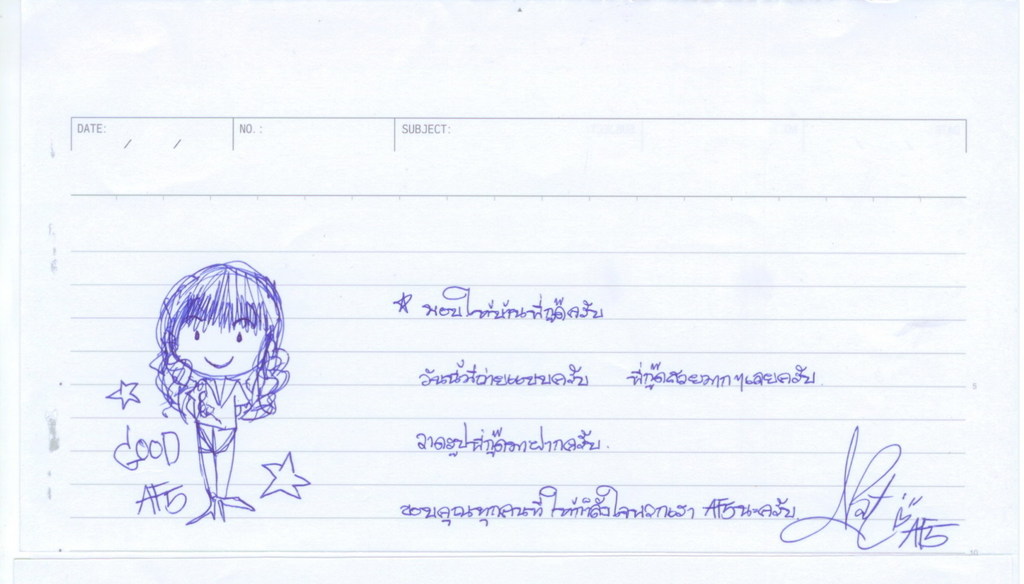 DATE: / /
NO.:
SUBJECT:
☆ มอบให้บ้านพี่กู๊ดครับ
วันนี้มีถ่ายแบบครับ พี่กู๊ดสวยมากๆเลยครับ
วาดรูปพี่กู๊ดมาฝากครับ.
GOOD
AF5
ขอบคุณทุกคนที่ให้กำลังใจพวกเรา AF5นะครับ
Nat
AF5
5
10